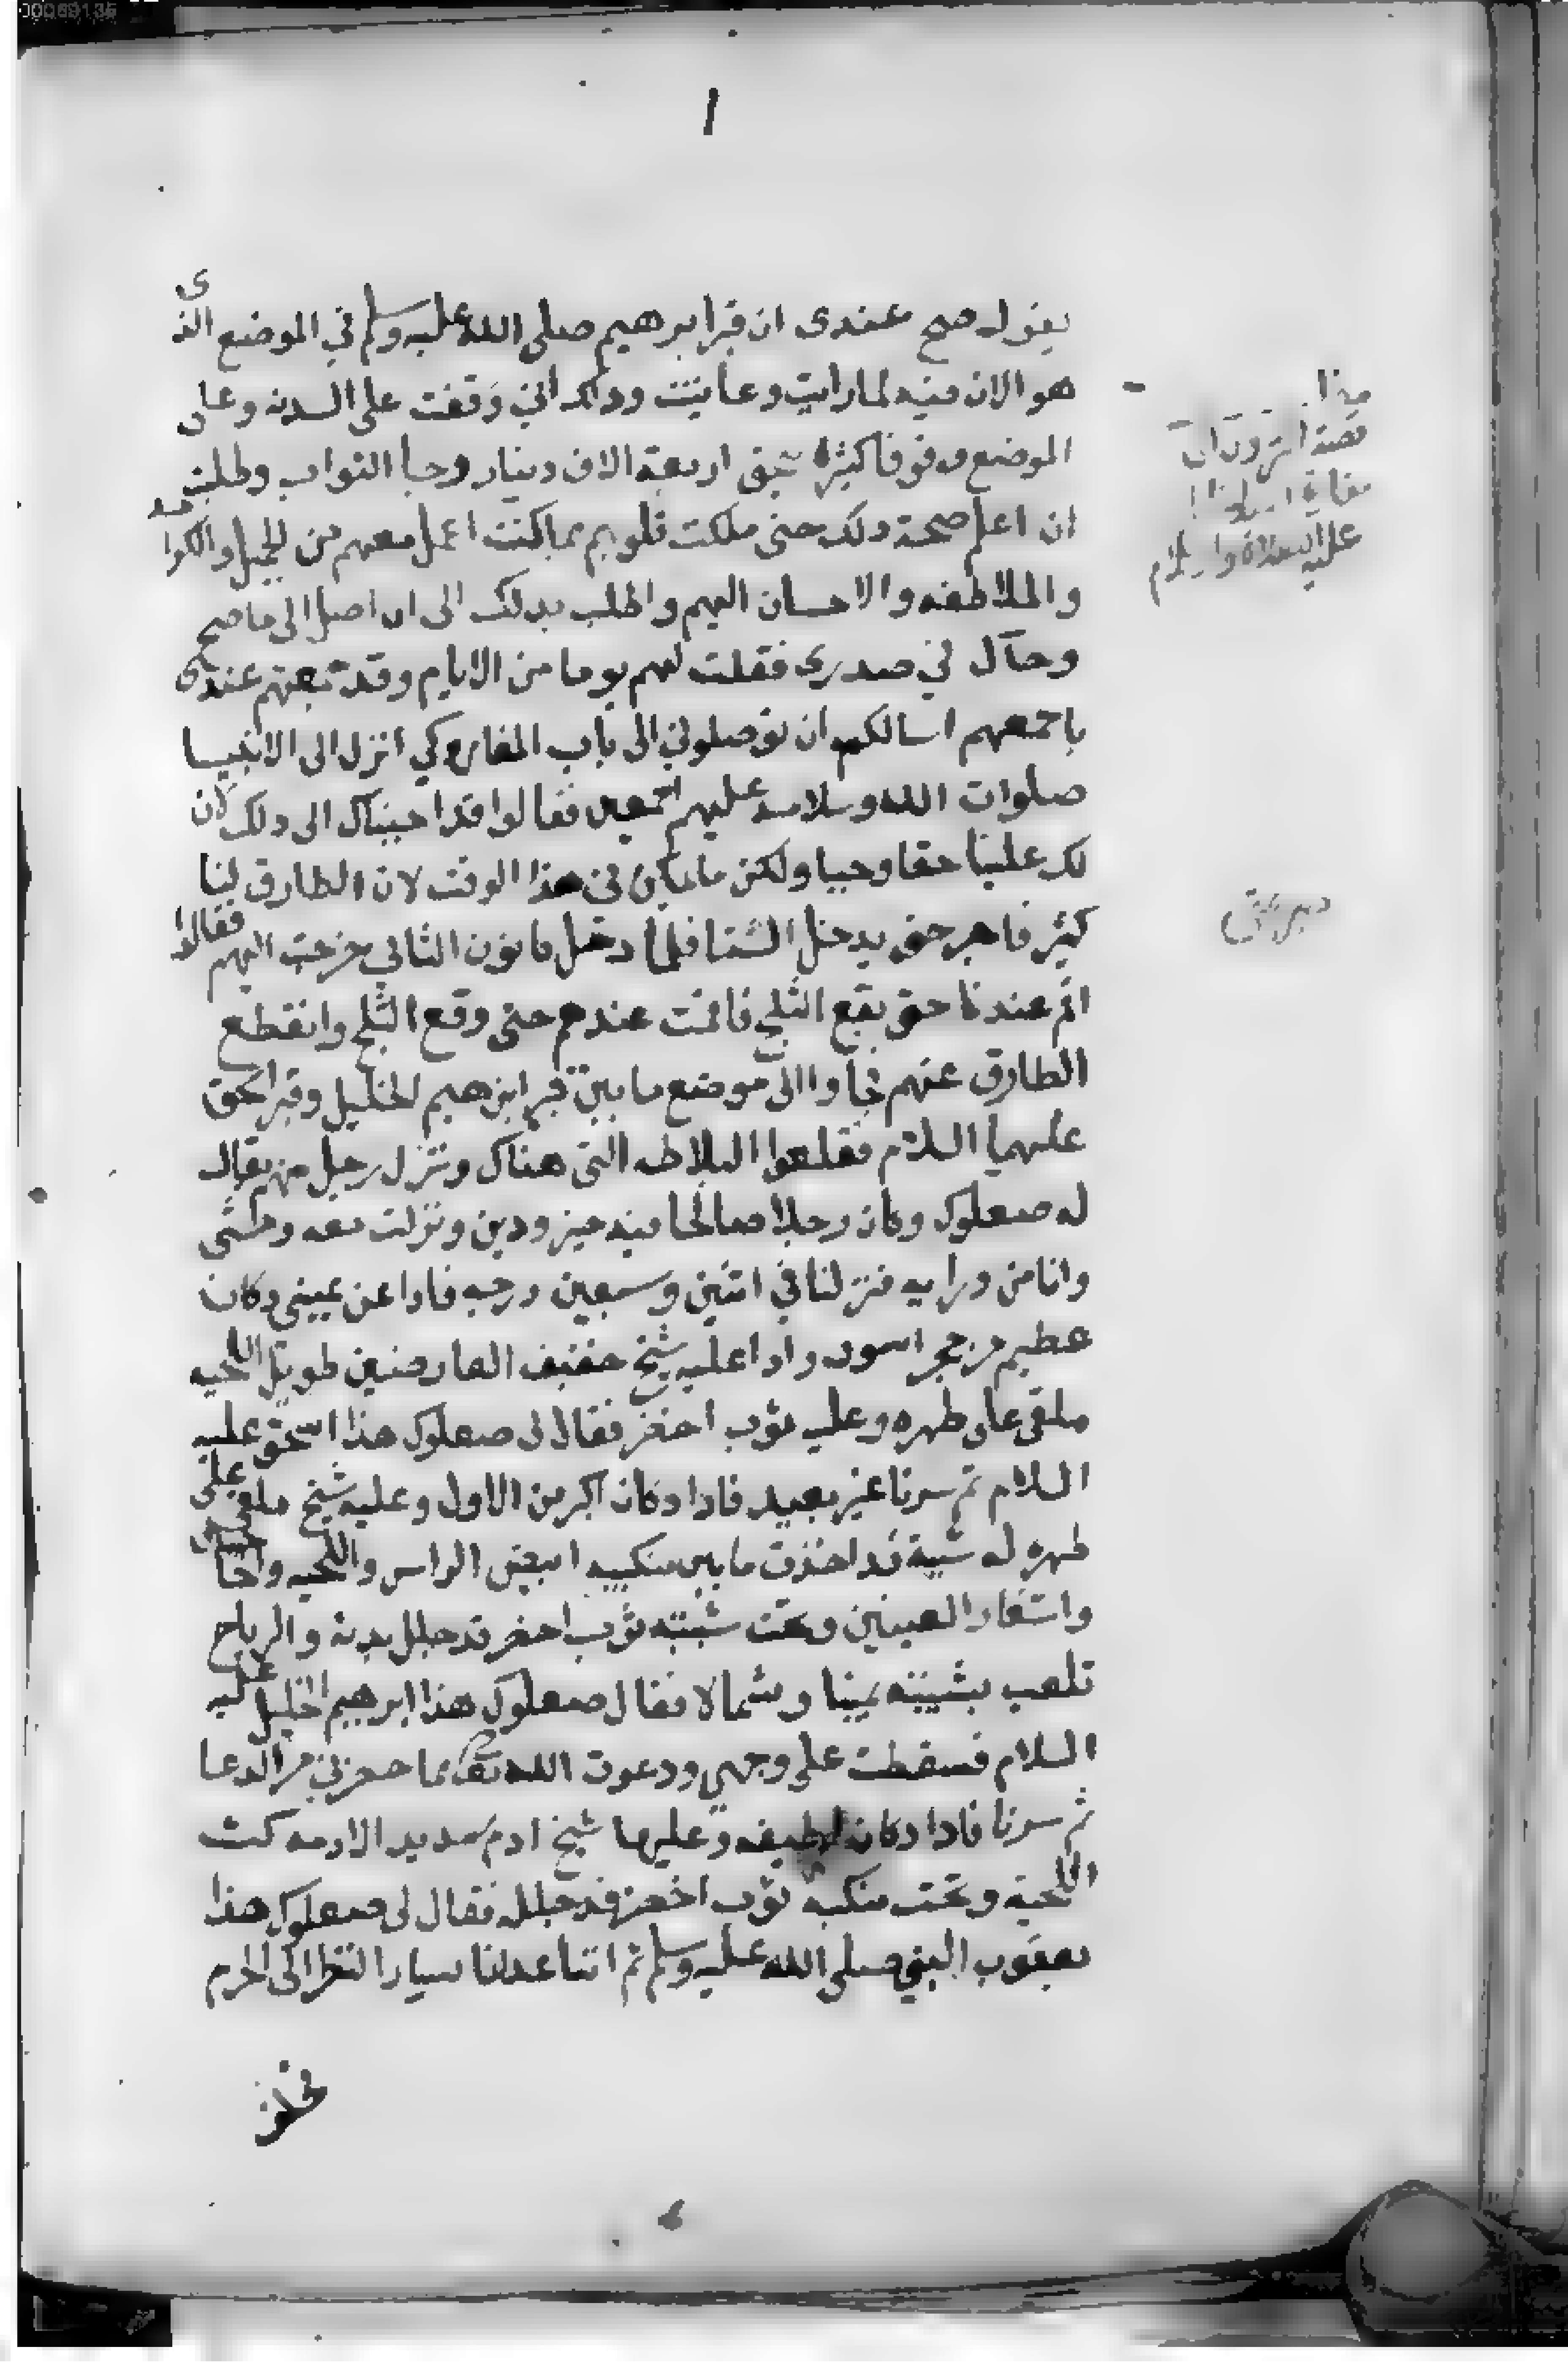 00069135
١
يقول صح عندى ان قبر ابرهيم صلى الله عليه وسلم في الموضع الذى
هو الان فيه لما رايت وعاينت وذلك اني وقفت على السدنه وعلى
الموضع وقوفا كثيرة نحو اربعة الاف دينار رجا الثواب وطلبت
ان اعلم صحة ذلك حتى ملكت قلوبهم بما كنت اعمل معهم من الجميل والكرامه
والملاطفه والاحسان اليهم واطلب بذلك الى ان اصل الى ما صح
وحاك في صدرى فقلت لهم يوما من الايام وقد جمعتهم عندى
باجمعهم اسالكم ان توصلوني الى باب المغاره كي انزل الى الانبيا
صلوات الله وسلامه عليهم اجمعين فقالوا قد اجبناك الى ذلك لان
لك علينا حقا وجبا ولكن ما يمكن في هذا الوقت لان الطارق لينا
كثير فاصبر حتى يدخل الشتا فلما دخل كانون الثاني خرجت اليهم فقالوا
اقم عندنا حتى يقع الثلج فاقمت عندهم حتى وقع الثلج وانقطع
الطارق عنهم فجاوا الى موضع ما بين قبر ابرهيم الخليل وقبر اسحق
عليهما السلام فقلعوا البلاطه التى هناك ونزل رجل منهم يقال
له صعلوك وكان رجلا صالحا فيه خير ودين ونزلت معه ومشى
وانا من ورايه فنزلنا في اثنين وسبعين درجه فاذا عن يمينى دكان
عظيم من حجر اسود واذا عليه شيخ خفيف العارضين طويل اللحيه
ملقى على ظهره وعليه ثوب اخضر فقال لى صعلوك هذا اسحق عليه
السلام ثم سرنا غير بعيد فاذا دكان اكبر من الاول وعليه شيخ ملقى على
ظهره له شيبة قد اخذت ما بين منكبيه ابيض الراس واللحيه والحاجبين
واشفار العينين وتحت شيبته ثوب اخضر قد جلل بدنه والرياح
تلعب بشيبته يمينا وشمالا فقال صعلوك هذا ابرهيم الخليل عليه
السلام فسقطت على وجهى ودعوت الله تعالى بما حضرني من الدعا
ثم سرنا فاذا دكان لطيفه وعليها شيخ ادم شديد الادمه كث
اللحية وتحت منكبه ثوب اخضر قد جلله فقال لى صعلوك هذا
يعقوب النبي صلى الله عليه وسلم ثم اننا عدلنا يسارا لننظر الى الحرم
عليه الصلاة والسلام